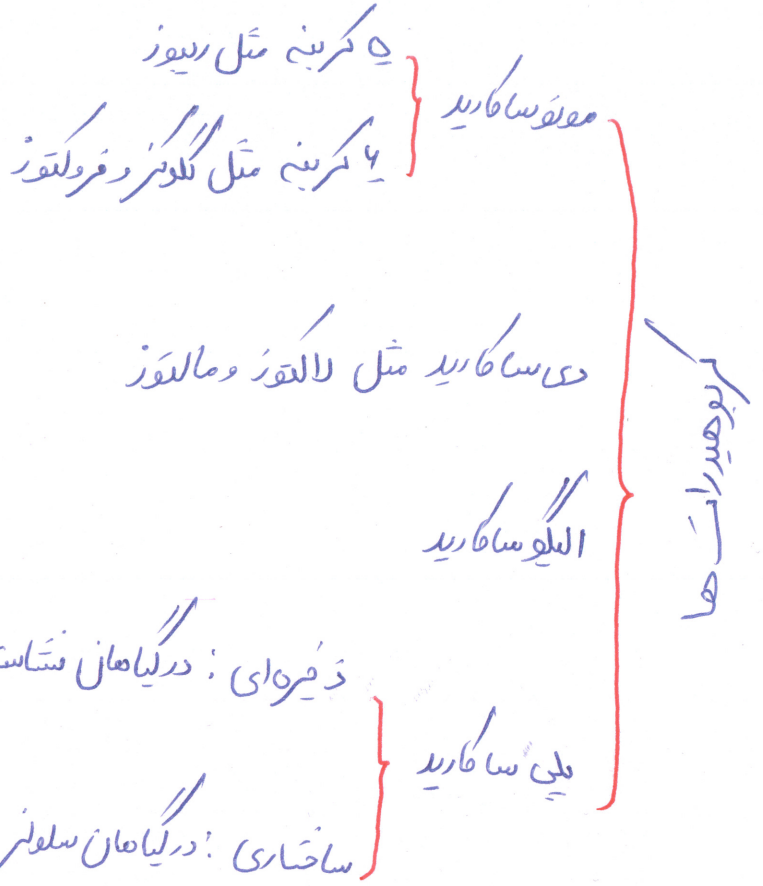 کربوهیدرات ها
مونوساکارید
۵ کربنه مثل ریبوز
۶ کربنه مثل گلوکز و فروکتوز
دی ساکارید مثل لاکتوز و مالتوز
الیگوساکارید
پلی ساکارید
ذخیره‌ای : در گیاهان
ساختاری : در گیاهان سلولز